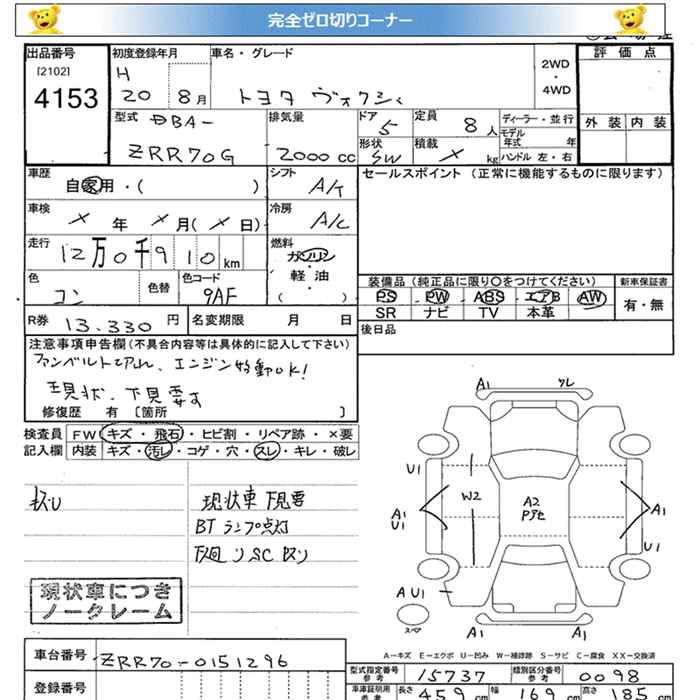 完全ゼロ切りコーナー
出品番号
[2102]
4153
初度登録年月
H
20 8月
車名・グレード
トヨタ ヴォクシィ
2WD
・
4WD
評価点
外装 内装
型式 DBA-
ZRR70G
排気量
2000 cc
ドア 5
形状 SW
定員 8人
積載 × kg
ディーラー・並行
モデル年式 年
ハンドル 左・右
車歴
自家用・( )
シフト A/T
セールスポイント (正常に機能するものに限ります)
車検
× 年 × 月(× 日)
冷房 A/C
走行
12万0千910 km
燃料
ガソリン
軽・油
( )
色
コン
色替
色コード
9AF
装備品(純正品に限り〇をつけてください)
PS PW ABS エアB AW
SR ナビ TV 本革
新車保証書
有・無
R券 13.330 円
名変期限 月 日
後日品
注意事項申告欄(不具合内容等は具体的に記入して下さい)
ファンベルト エンジン始動OK!
現状、下見要す
修復歴 有 [箇所 ]
検査員
記入欄
FW キズ・飛石・ヒビ割・リペア跡・×要
内装 キズ・汚レ・コゲ・穴・スレ・キレ・破レ
キズU
現状車 下見要
BTランプ点灯
下回りSC 有り
現状車につき
ノークレーム
A1 ツレ
U1
W2
A2
Pアセ
A1
U1
A1
U1
A U1
スペア
A1 A1
A-キズ E-エクボ U-凹み W-補修跡 S-サビ C-腐食 XX-交換済
車台番号 ZRR70-0151296
登録番号
型式指定番号 参考 15737
類別区分番号 参考 0098
車庫証明用 参考 長さ 459 cm 幅 169 cm 高さ 185 cm